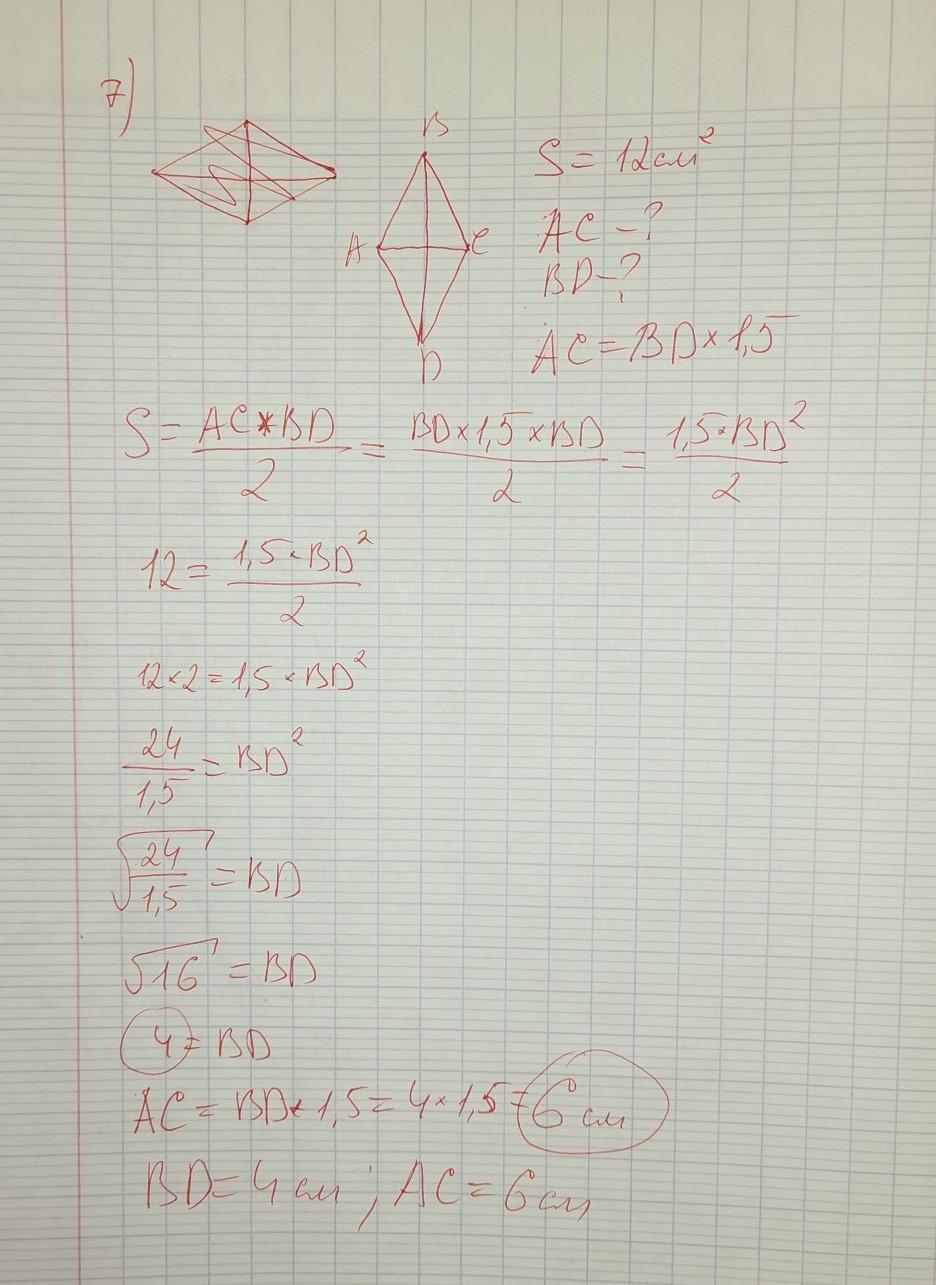 7)
B
A C
D
S = 12 см²
AC - ?
BD - ?
AC = BD × 1,5
S = AC * BD / 2 = BD × 1,5 × BD / 2 = 1,5 × BD² / 2
12 = 1,5 × BD² / 2
12 × 2 = 1,5 × BD²
24 / 1,5 = BD²
√(24 / 1,5) = BD
√16 = BD
4 = BD
AC = BD × 1,5 = 4 × 1,5 = 6 см
BD = 4 см ; AC = 6 см